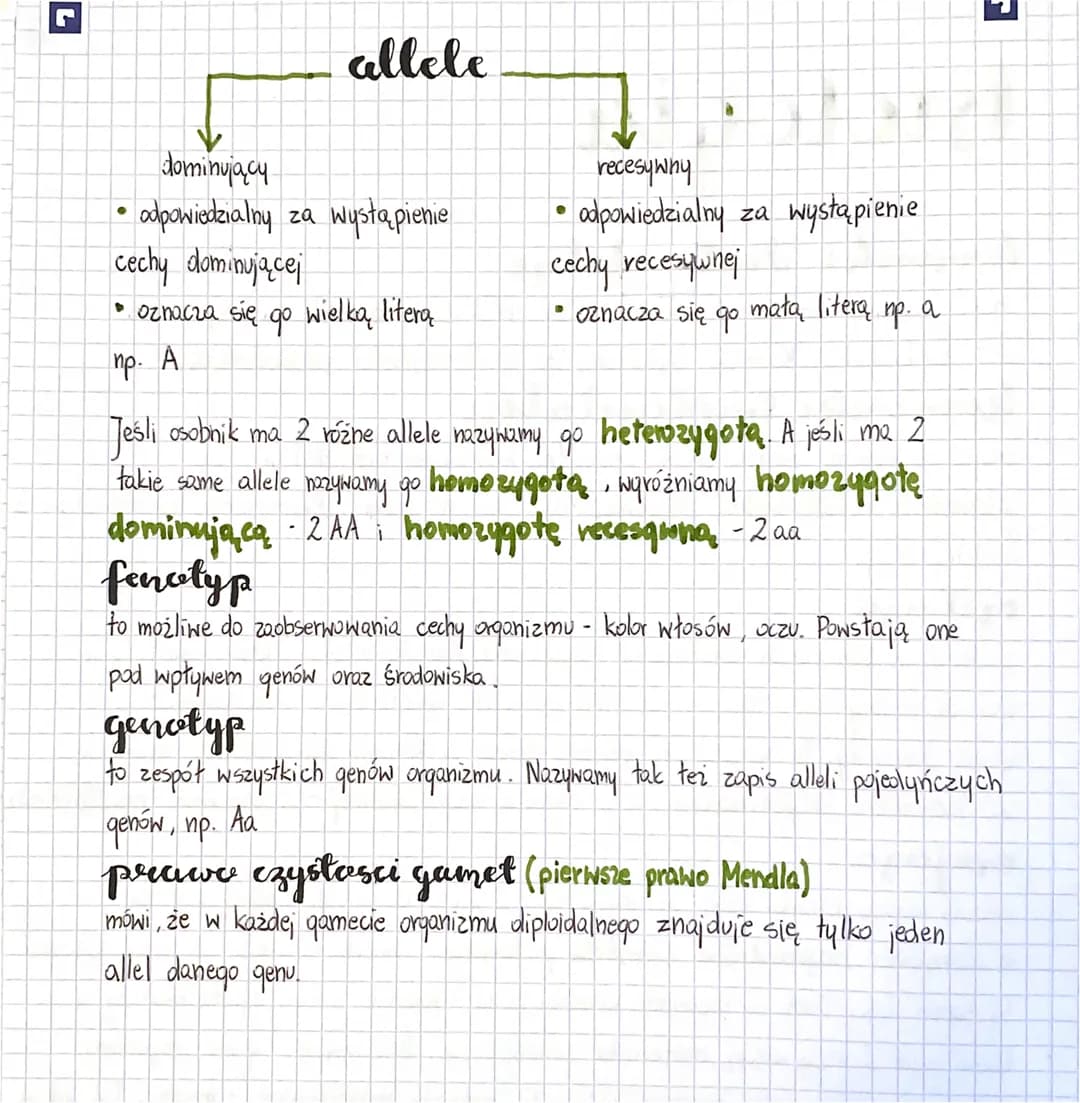 allele
dominujący
• odpowiedzialny za wystąpienie
cechy dominującej
• oznacza się go wielką literą
np. A
recesywny
• odpowiedzialny za wystąpienie
cechy recesywnej
• oznacza się go małą literą np. a
Jeśli osobnik ma 2 różne allele nazywamy go heterozygotą. A jeśli ma 2
takie same allele nazywamy go homozygotą, wyróżniamy homozygotę
dominującą - 2 AA i homozygotę recesywną - 2 aa
fenotyp
to możliwe do zaobserwowania cechy organizmu - kolor włosów, oczu. Powstają one
pod wpływem genów oraz środowiska.
genotyp
to zespół wszystkich genów organizmu. Nazywamy tak też zapis alleli pojedyńczych
genów, np. Aa
prawo czystości gamet (pierwsze prawo Mendla)
mówi, że w każdej gamecie organizmu diploidalnego znajduje się tylko jeden
allel danego genu.